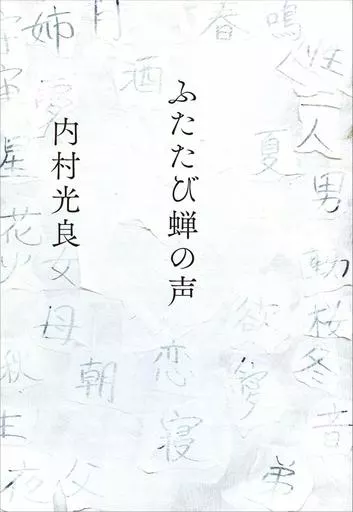 ふたたび蝉の声
内村光良
鳴
春
月
姉
性
酒
一人
夏
男
宇宙
星
花火
女
動
桜
欲
母
冬
恋
夢
朝
秋
昔
寝
弟
父
夜